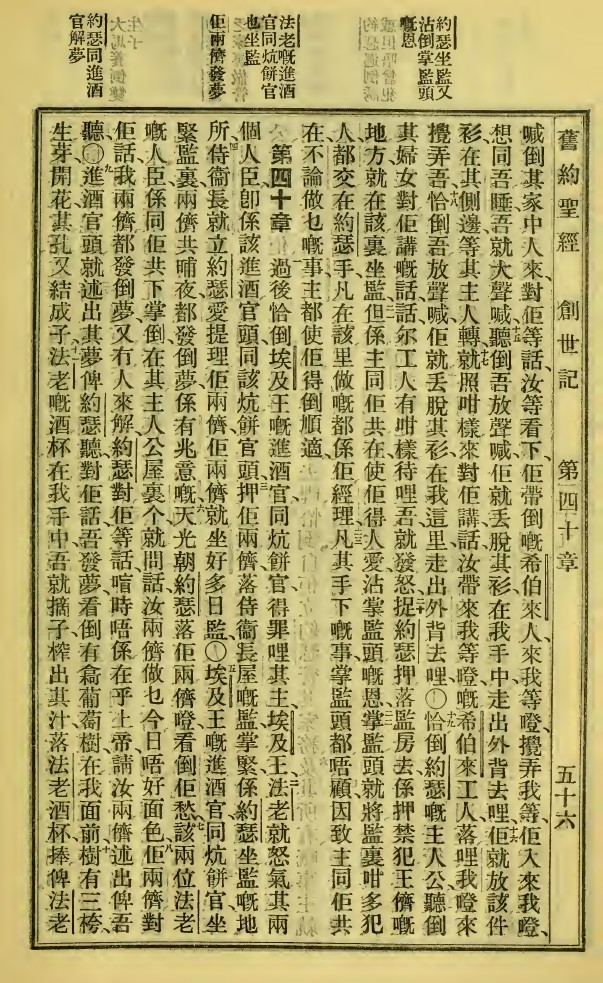 舊約聖經 創世記 第四十章 五十六
約瑟坐監又
沾倒掌監頭
嘅恩
法老嘅進酒
官同炕餅官
也坐監
佢兩儕發夢
約瑟同進酒
官解夢
喊倒其家中人來、對佢等話、汝等看下、佢帶倒嘅希伯來人來我等、噔攪弄我等、佢入來我噔、
想同吾睡、吾就大聲喊、十五聽倒吾放聲喊、佢就丟脫其衫在我手中走出外背去哩、十六佢就放該件
衫在其側邊、等其主人轉、十七就照咁樣來對佢講話、汝帶來我等噔嘅希伯來工人、落哩我噔來
攪弄吾、十八恰倒吾放聲喊、佢就丟脫其衫在我這里、走出外背去哩、〇十九恰倒約瑟嘅主人公聽倒
其婦女對佢講嘅話、話尔工人有咁樣待哩吾、就發怒、二十捉約瑟押落監房去、係押禁犯王儕嘅
地方、就在該裏坐監、二一但係主同佢共在、使佢得人愛、沾掌監頭嘅恩、二二掌監頭就將監裏咁多犯
人、都交在約瑟手、凡在該里做嘅都係佢經理、二三凡其手下嘅事、掌監頭都唔顧、因致主同佢共
在、不論做乜嘅事、主都使佢得倒順適、
第四十章 一過後恰倒埃及王嘅進酒官、同炕餅官、得罪哩其主埃及王、二法老就怒氣其兩
個人臣、卽係該進酒官頭、同該炕餅官頭、三押佢兩儕落侍衞長屋嘅監、掌緊係約瑟坐監嘅地
所、四侍衞長就立約瑟愛提理佢兩儕、佢兩儕就坐好多日監、〇五埃及王嘅進酒官、同炕餅官、坐
緊監裏、兩儕共晡夜都發倒夢、係有兆意嘅、六天光朝約瑟落佢兩儕噔、看倒佢愁、七該兩位法老
嘅人臣、係同佢共下掌倒在其主人公屋裏个、就問話、汝兩儕做乜今日唔好面色、八佢兩儕對
佢話、我兩儕都發倒夢、又冇人來解、約瑟對佢等話、喧時唔係在乎上帝、請汝兩儕述出俾吾
聽、〇九進酒官頭就述出其夢俾約瑟聽、對佢話、吾發夢看倒有翕葡萄樹在我面前、十樹有三桍、
生芽開花、其孔又結成子、十一法老嘅酒杯在我手中、吾就摘子榨出其汁落法老酒杯、捧俾法老